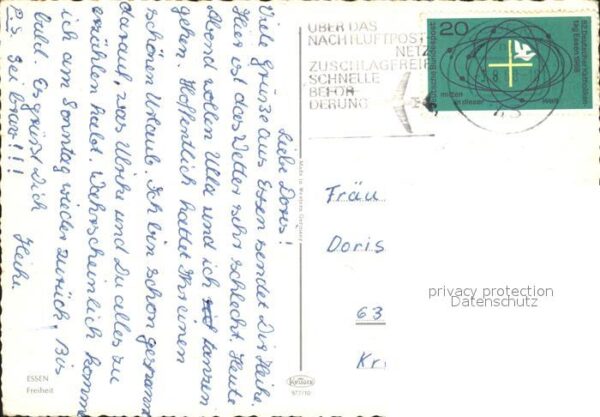 Liebe Doris!
Viele Grüße aus Essen sendet Dir Heike.
Hier ist das Wetter sehr schlecht. Heute
Abend wollen Ulla und ich tanzen
gehen. Hoffentlich hattet Ihr einen
schönen Urlaub. Ich bin schon gespannt
darauf, was Ulrike und Du alles zu
erzählen habt. Wahrscheinlich komme
ich am Sonntag wieder zurück. Bis
bald. Es grüßt Dich
Heike.
ÜBER DAS
NACHTLUFTPOST
NETZ
ZUSCHLAGFREIE
SCHNELLE
BEFÖR
DERUNG
20
Deutsche Bundespost
82. Deutscher Katholiken-
tag Essen 1968
mitten
in dieser
Welt
Fräu
Doris
63
privacy protection
Datenschutz
Made in Western Germany
ESSEN
Freiheit
Krüger
977/10